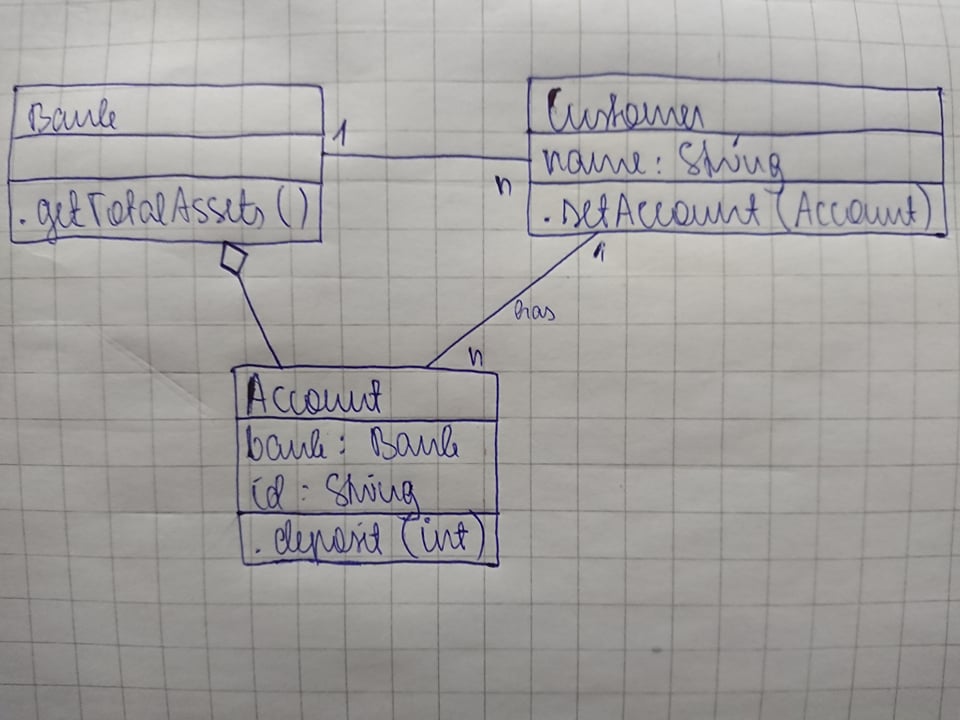 Bank
.getTotalAssets()
1
n
Customer
name: String
.setAccount(Account)
1
has
n
Account
bank: Bank
id: String
.deposit(int)